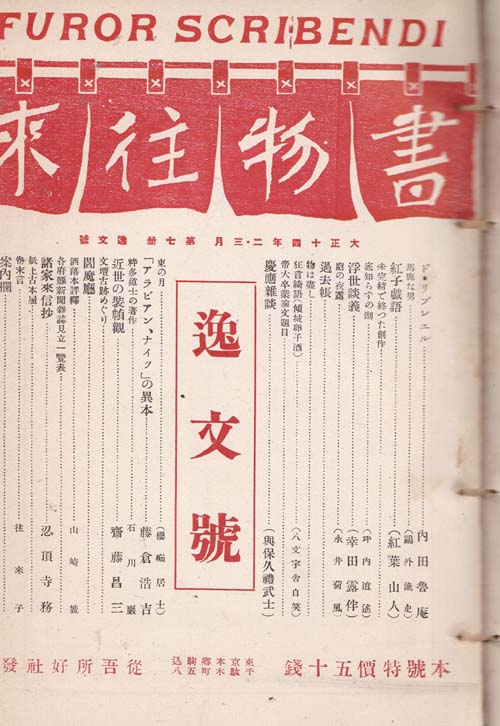 FUROR SCRIBENDI
書物往來
大正十四年二・三月 第七册 逸文號
ド・リブレエル 內田魯庵
馬鹿な男 (鷗外漁史)
紅子戲語 (紅葉山人)
未完結で終つた創作
底知らずの湖 (坪內逍遙)
浮世談義 (幸田露伴)
庭の夜露 (永井荷風)
過去帳
物は盡し
狂言綺語(傾城卵子酒) (八文字舍自笑)
帝大卒業論文題目
慶應雜談 (與保久禮武士)
逸文號
東の月 (櫻痴居士)
粹多道士の著作 石川巖
「アラビアン、ナイツ」の異本 藤倉浩吉
近世の裝幀觀 齋藤昌三
文壇古跡めぐり
閻魔廳
洒落本評釋 山崎麓
各府縣新聞雜誌見立一覽表
諸家來信抄 忍頂寺務
紙上古本屋
卷末言 往來子
案內欄
本號特價五十錢
東京本鄉駒込
千駄木町五八
從吾所好社發